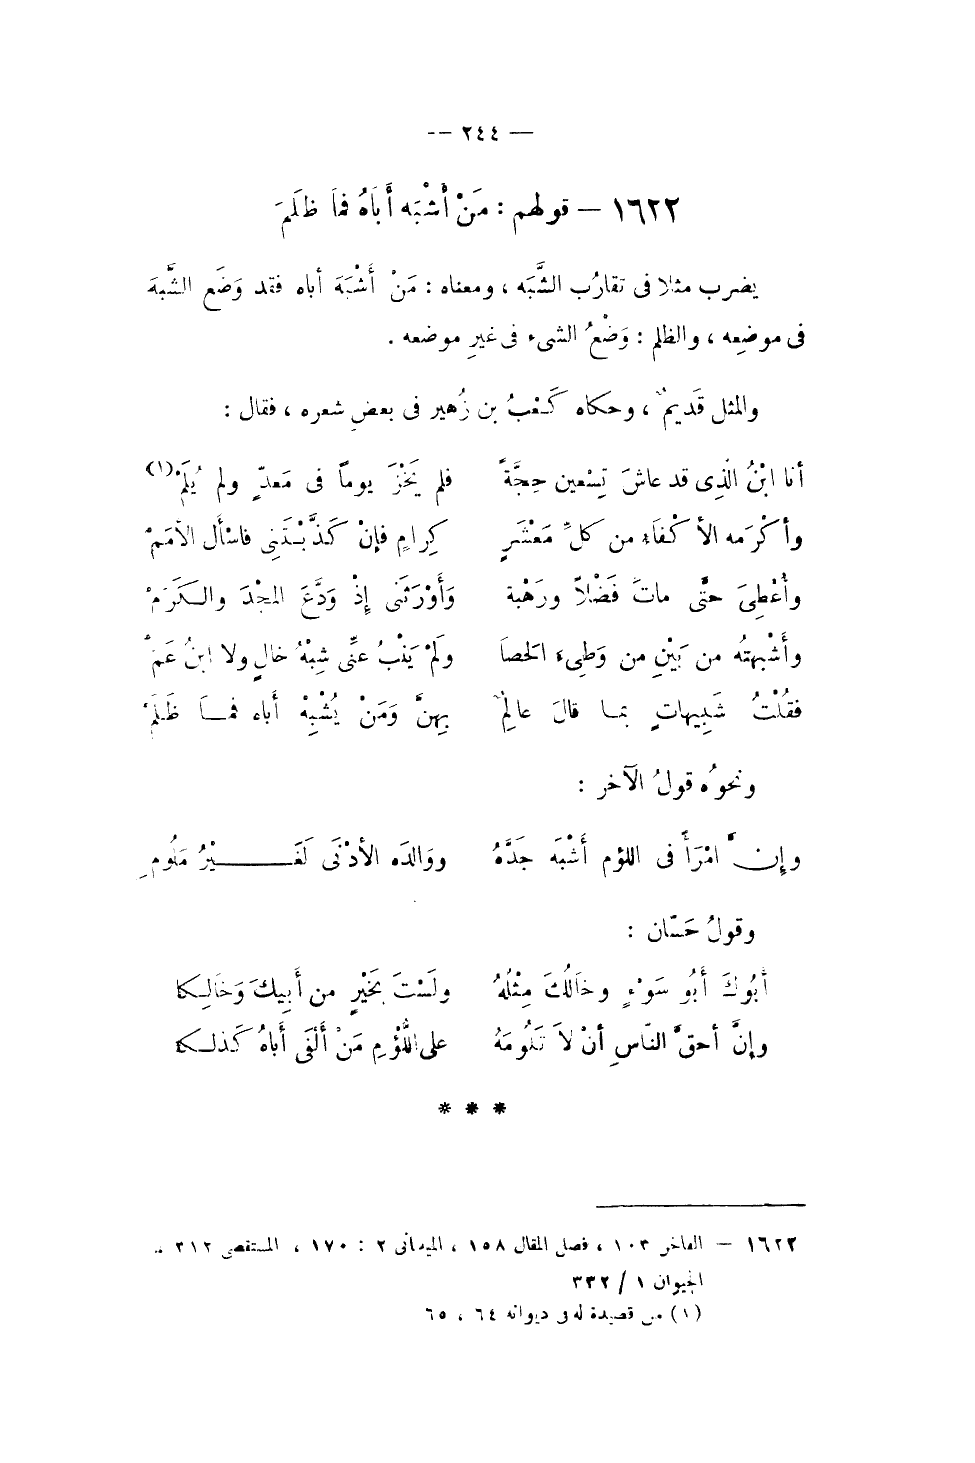 — ٢٤٤ —
١٦٢٢ — قولهم : مَنْ أَشْبَه أَبَاهُ فَمَا ظَلَمَ
يضرب مثلا فى تقارُب الشَّبَه ، ومعناه : مَنْ أَشْبَهَ أباه فقد وَضَع الشَّبَهَ
فى موضِعِه ، والظلم : وَضْعُ الشىء فى غيرِ موضعه .
والمثل قَديمٌ ، وحكاه كَعْبُ بن زُهير فى بعض شعره ، فقال :
أنا ابْنُ الَّذِى قد عاشَ تِسْعين حِجَّةً فلم يَخْزَ يوماً فى مَعدٍّ ولم يُلَمْ(١)
وأكْرَمه الأكْفَاء من كلِّ مَعْشَرٍ كِرامٍ فإنْ كَذَّبْتَنِى فاسْأَل الأمَمْ
وأُعْطِىَ حتَّى ماتَ فَضْلاً ورَهْبة وَأَوْرَثَنى إذْ وَدَّعَ المجْدَ والكَرَمْ
وأَشْبهتُه من بَيْنِ من وَطِىءَ الحَصَا ولَمْ يَنْبُ عنِّى شِبْهُ خالٍ ولا ابنُ عَمْ
فقُلْتُ شَبِيهاتٍ بما قالَ عالِمٌ بِهِنَّ وَمَنْ يُشْبِهْ أَباه فمـا ظَلَمْ
ونحوُه قولُ الآخر :
وإنَّ امْرَأً فى اللؤم أَشْبَه جَدَّهُ ووَالدَه الأدْنَى لَغَيْرُ مَلُومِ
وقولُ حَسّان :
أبُوكَ أَبُو سَوْءٍ وخَالُكَ مِثْلُهُ ولَسْتَ بِخَيْرٍ من أَبِيكَ وَخَالِكا
وإنَّ أحقَّ النّاسِ أنْ لاَ تَلُومَهُ على اللُّؤْمِ مَنْ أَلْفَى أَباهُ كَذلكا
* * *
١٦٢٢ — الفاخر ١٠٣ ، فصل المقال ١٥٨ ، الميدانى ٢ : ١٧٠ ، المستقصى ٣١٢ ..
الحيوان ١ / ٣٣٢
(١) من قصيدة له فى ديوانه ٦٤ ، ٦٥